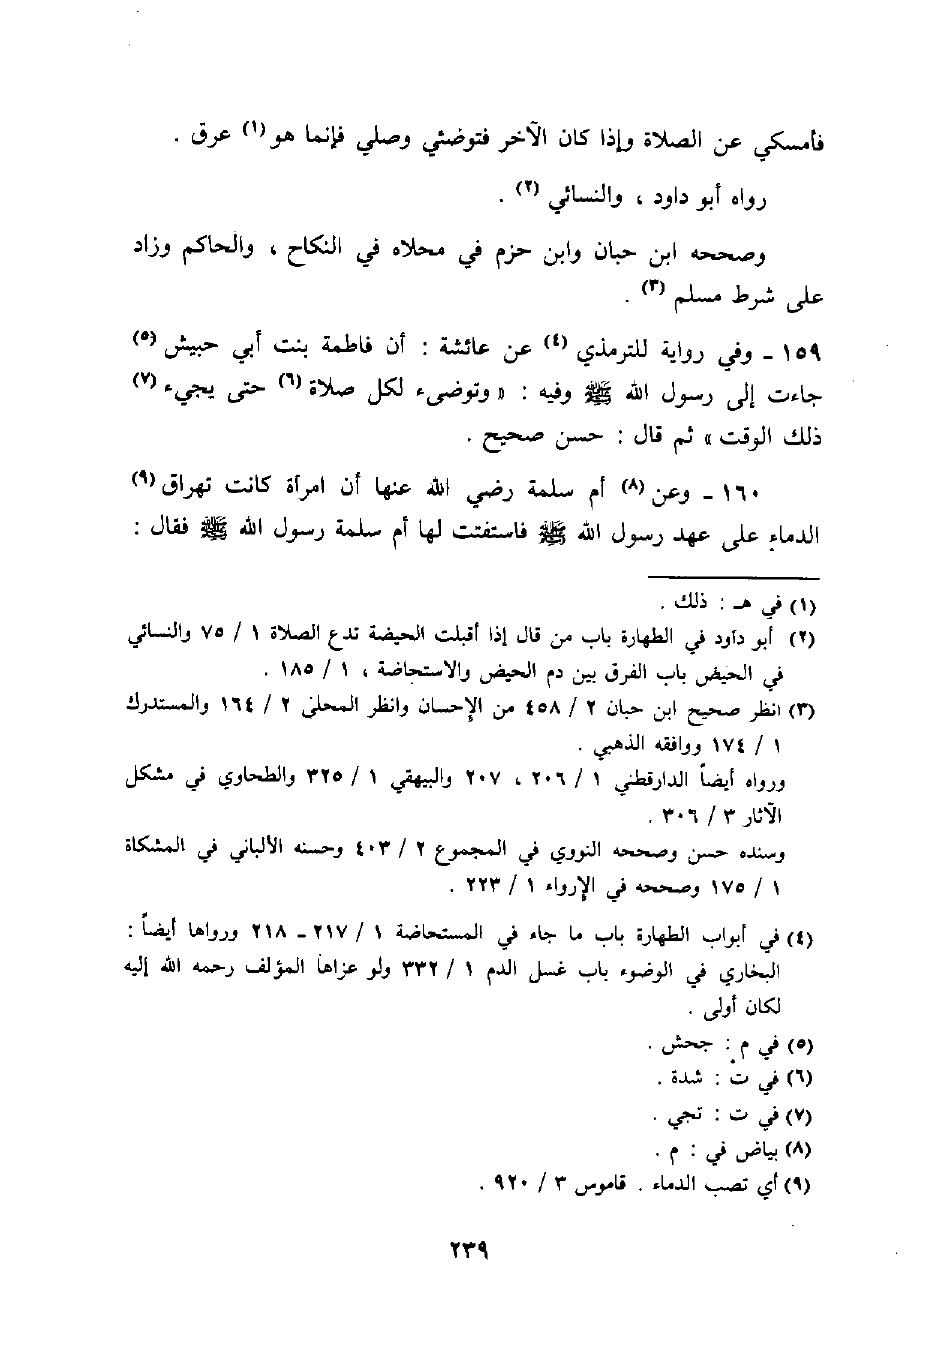 فأمسكي عن الصلاة وإذا كان الآخر فتوضئي وصلي فإنما هو (١) عرق .
رواه أبو داود ، والنسائي (٢) .
وصححه ابن حبان وابن حزم في محلاه في النكاح ، والحاكم وزاد
على شرط مسلم (٣) .
١٥٩ - وفي رواية للترمذي (٤) عن عائشة : أن فاطمة بنت أبي حبيش (٥)
جاءت إلى رسول الله ﷺ وفيه : « وتوضىء لكل صلاة (٦) حتى يجيء (٧)
ذلك الوقت » ثم قال : حسن صحيح .
١٦٠ - وعن (٨) أم سلمة رضي الله عنها أن امرأة كانت تهراق (٩)
الدماء على عهد رسول الله ﷺ فاستفتت لها أم سلمة رسول الله ﷺ فقال :
(١) في هـ : ذلك .
(٢) أبو داود في الطهارة باب من قال إذا أقبلت الحيضة تدع الصلاة ١ / ٧٥ والنسائي
في الحيض باب الفرق بين دم الحيض والاستحاضة ، ١ / ١٨٥ .
(٣) انظر صحيح ابن حبان ٢ / ٤٥٨ من الإحسان وانظر المحلى ٢ / ١٦٤ والمستدرك
١ / ١٧٤ ووافقه الذهبي .
ورواه أيضاً الدارقطني ١ / ٢٠٦ ، ٢٠٧ والبيهقي ١ / ٣٢٥ والطحاوي في مشكل
الآثار ٣ / ٣٠٦ .
وسنده حسن وصححه النووي في المجموع ٢ / ٤٠٣ وحسنه الألباني في المشكاة
١ / ١٧٥ وصححه في الإرواء ١ / ٢٢٣ .
(٤) في أبواب الطهارة باب ما جاء في المستحاضة ١ / ٢١٧ - ٢١٨ ورواها أيضاً :
البخاري في الوضوء باب غسل الدم ١ / ٣٣٢ ولو عزاها المؤلف رحمه الله إليه
لكان أولى .
(٥) في م : جحش .
(٦) في ت : شدة .
(٧) في ت : تجي .
(٨) بياض في : م .
(٩) أي تصب الدماء . قاموس ٣ / ٩٢٠ .
٢٣٩